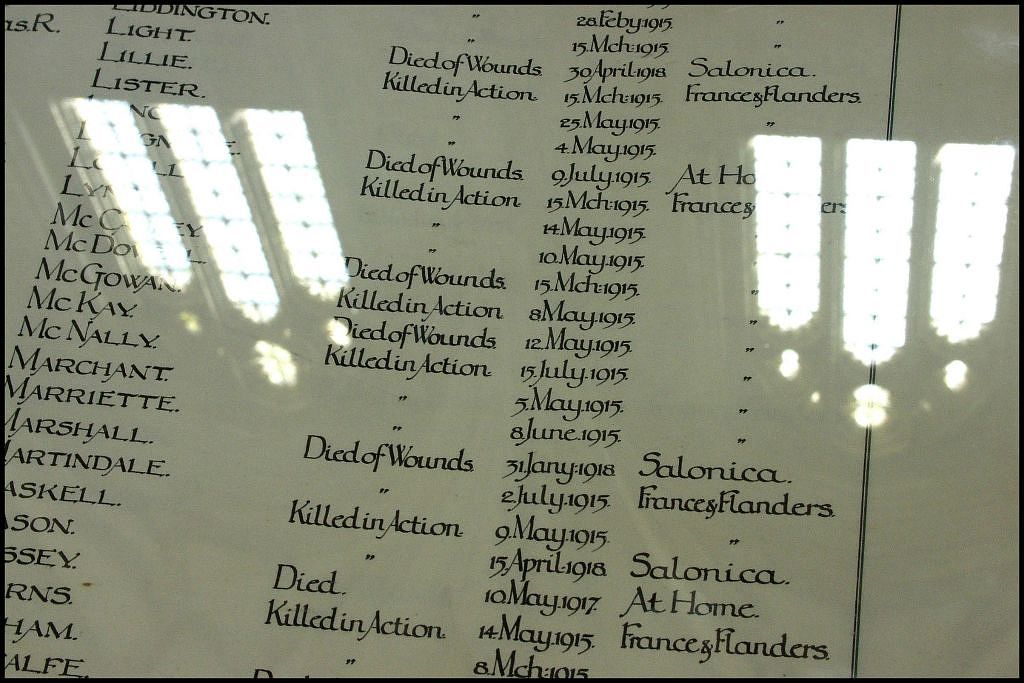 LIDDINGTON. " 28.Feby.1915. "
as.R. LIGHT. " 15.Mch:1915. "
LILLIE. Died of Wounds. 30.April.1918 Salonica.
LISTER. Killed in Action. 15.Mch:1915. France & Flanders.
" 25.May.1915. "
" 4.May.1915.
Died of Wounds. 9.July.1915. At Ho
Killed in Action. 15.Mch:1915. France &
" 14.May.1915.
" 10.May.1915.
McGOWAN. Died of Wounds. 15.Mch:1915. "
McKAY. Killed in Action. 8.May.1915. "
McNALLY. Died of Wounds. 12.May.1915. "
MARCHANT. Killed in Action. 15.July.1915. "
MARRIETTE. " 5.May.1915. "
MARSHALL. " 8.June.1915. "
ARTINDALE. Died of Wounds. 31.Jany:1918 Salonica.
ASKELL. " 2.July.1915. France & Flanders.
SON. Killed in Action. 9.May.1915. "
SSEY. " 15.April.1918. Salonica.
RNS. Died. 10.May.1917. At Home.
HAM. Killed in Action. 14.May.1915. France & Flanders.
ALFE. " 8.Mch:1915.